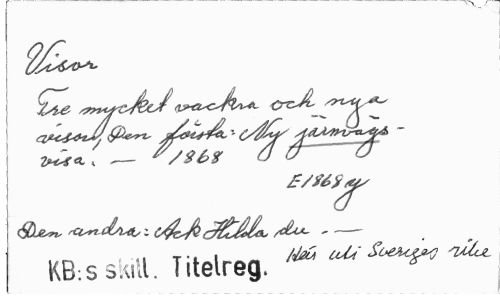 Visor
Tre mycket vackra och nya
visor, Den första: Ny järnvägs-
visa. — 1868
E1868y
Den andra: Ack Hilda du. —
Här uti Sveriges rike
KB:s skill. Titelreg.